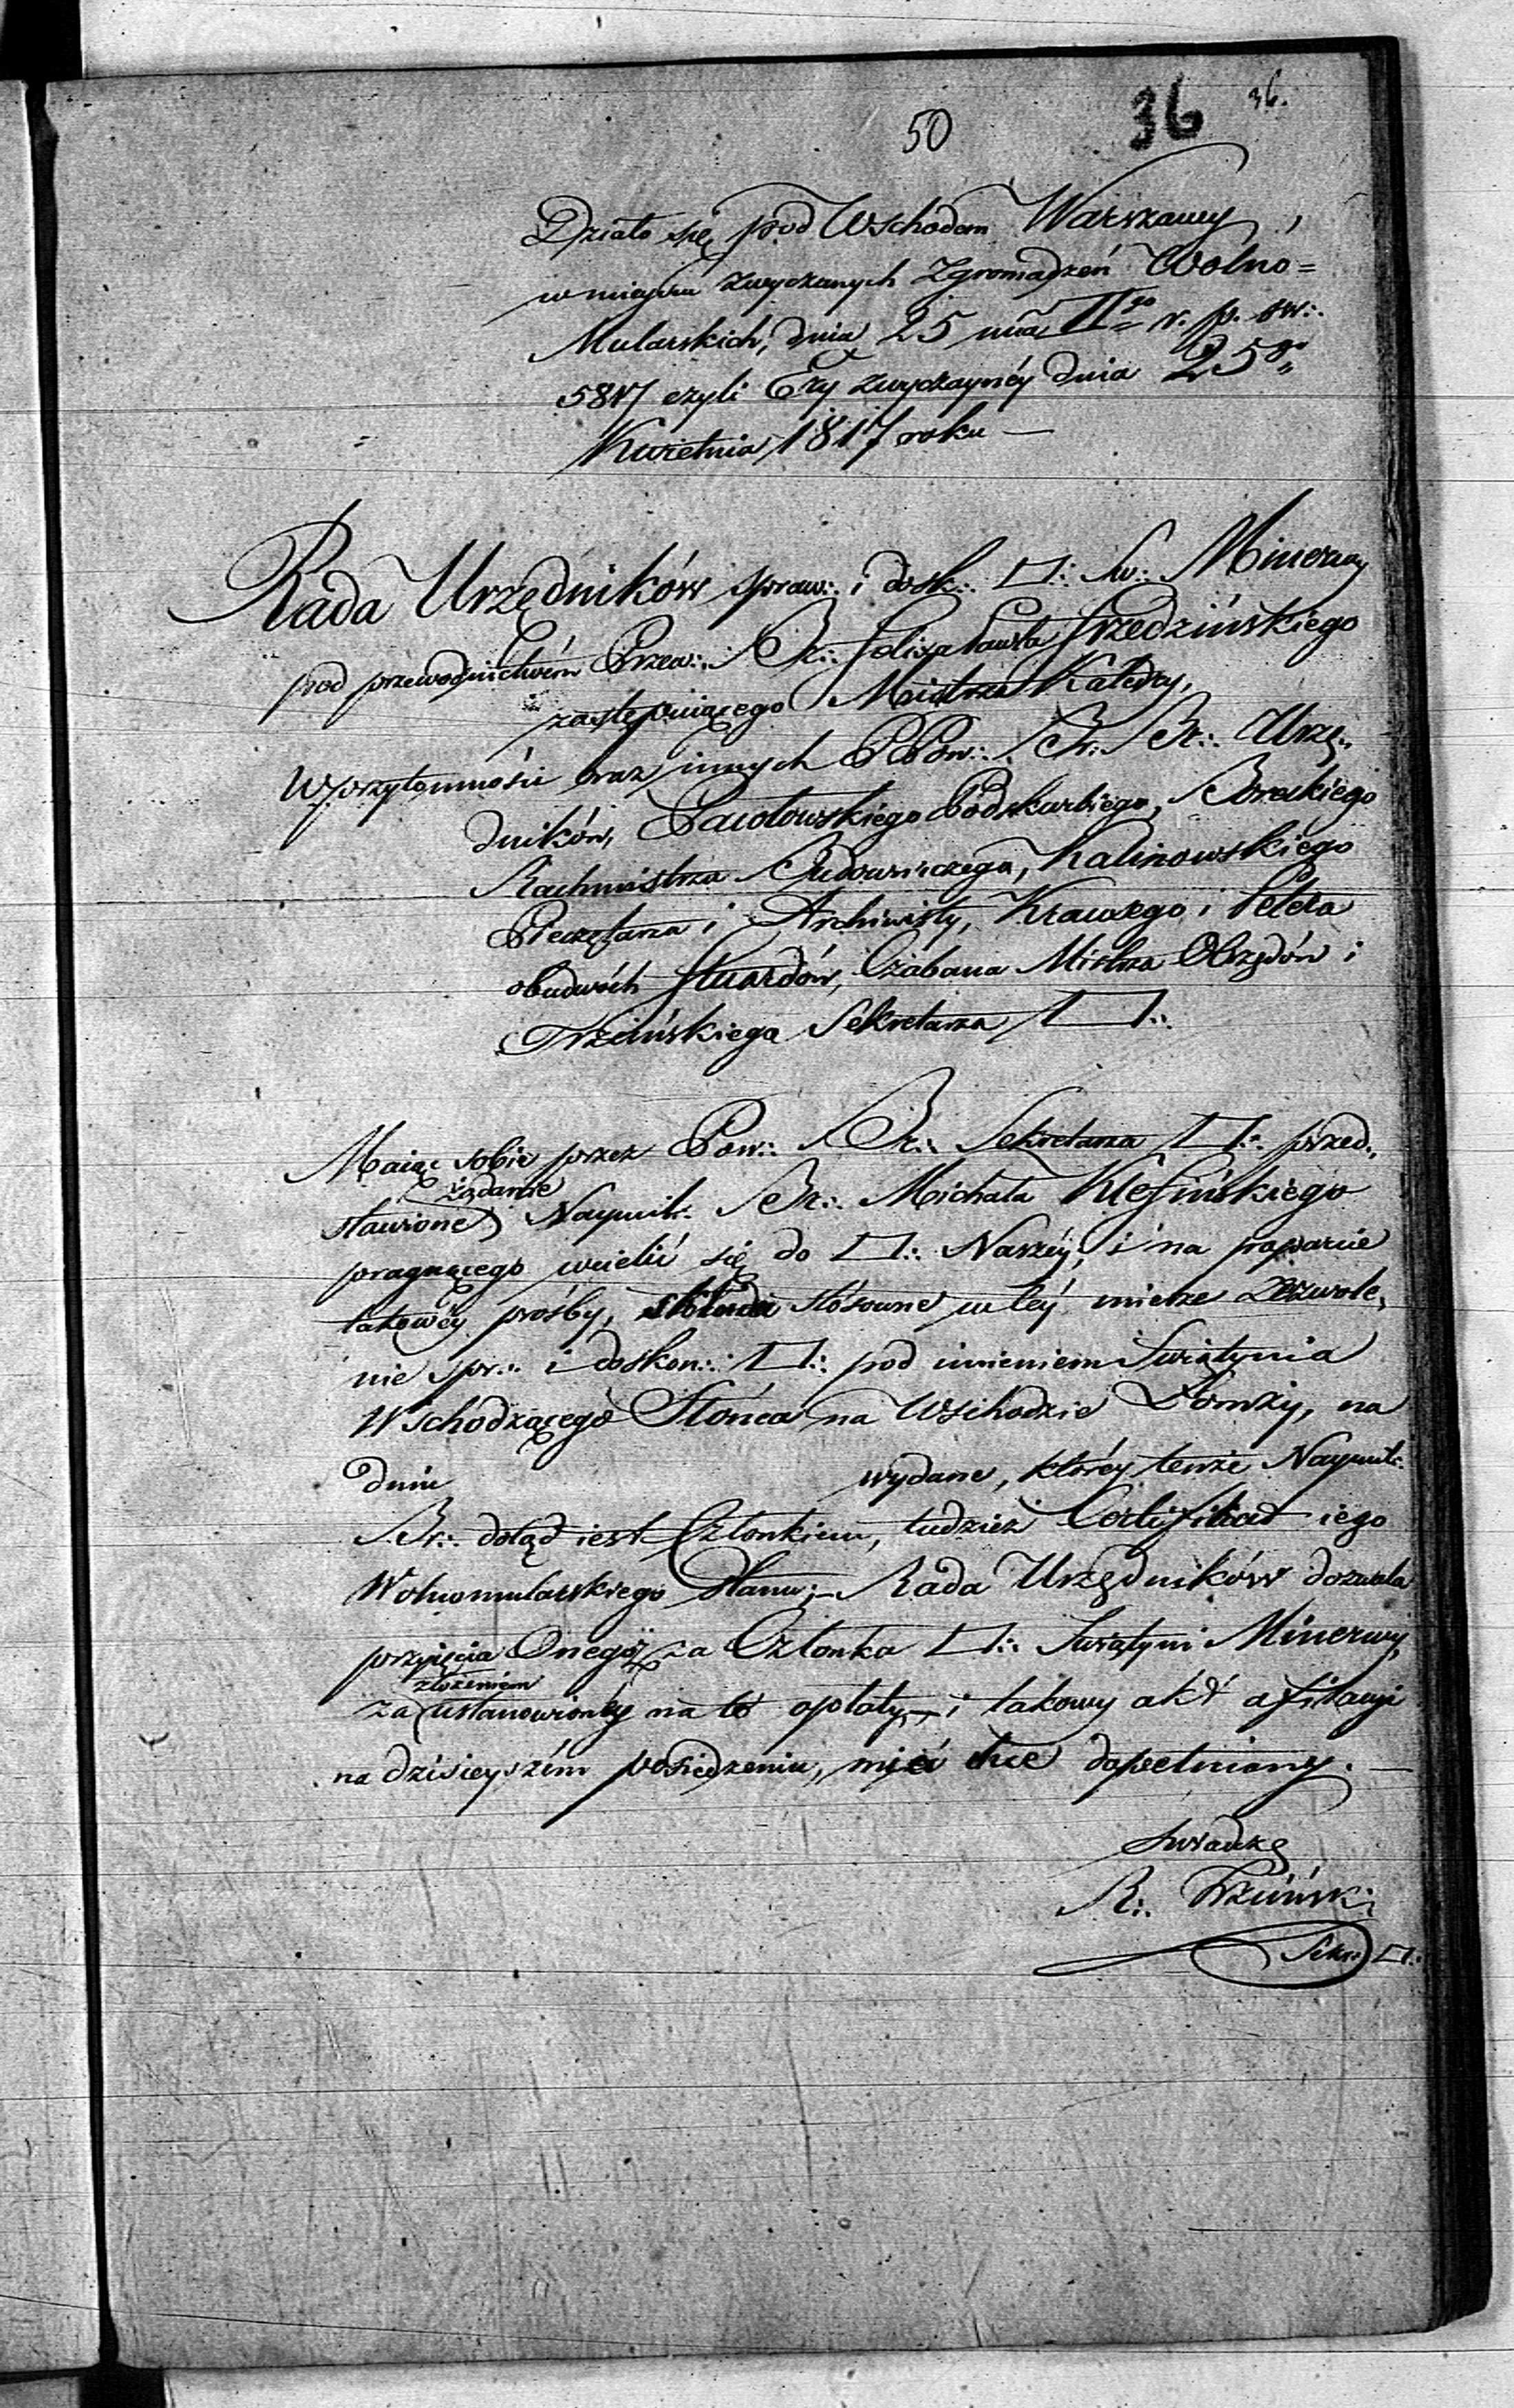 50 36 36.
Działo się pod Wschodem Warszawy,
w mieyscu zwyczanych Zgromadzeń Wolno=
Mularskich, dnia 25 mca IIgo r. p. św:.
5817 czyli Ery zwyczaynéy dnia 25go
Kwietnia 1817 roku —
Rada Urzędników spraw:. i dosk:. □:. Św:. Minerwy
pod przewodnictwém Przew:. Br:. Felixa Pawła Grzedzińskiego
zastępuiącego Maistra Katedry,
W przytomności oraz innych PPow:. Br:. Br:. Urzę„
dników, Pawłowskiégo Podskarbiego, Boreckiego
Rachmistrza Budowniczego, Kalinowskiego
Pieczętarza i Archiwisty, Krawzego i Petera
obudwóch Stuardów, Czabana Mistrza Obrzędów i
Trzcińskiego Sekretarza □:.
Maiąc sobie przez Pow:. Br:. Sekretarza □:. przed„
żądanie
stawione Naymil:. Br:. Michała Klesińskiego
pragnącego wcielić się do □:. Naszéy, i na poparcie
takowéy prośby, stósowne w téy mierze zezwole„
nie spr:. i doskon:. □:. pod imieniem Swiątynia
Wschodzącégo Słońca na Wschodzie Łomży, na
dniu wydane, któréy tenże Naymil:.
Br:. dotąd iest Członkiem, tudzież Certifikat iego
Wolnomularskiego Stanu;— Rada Urzędników dozwala
przyięcia Onegóż za Członka □:. Swiątyni Minerwy,
złożeniem
za ustanowionéy na to opłaty,— i takowy akt afiliacyi
na dzisieyszém posiedzeniu, mieć chce dopełniony. —
Swiadczę
R:. Trzcińsk:.
Sekr:. □:.